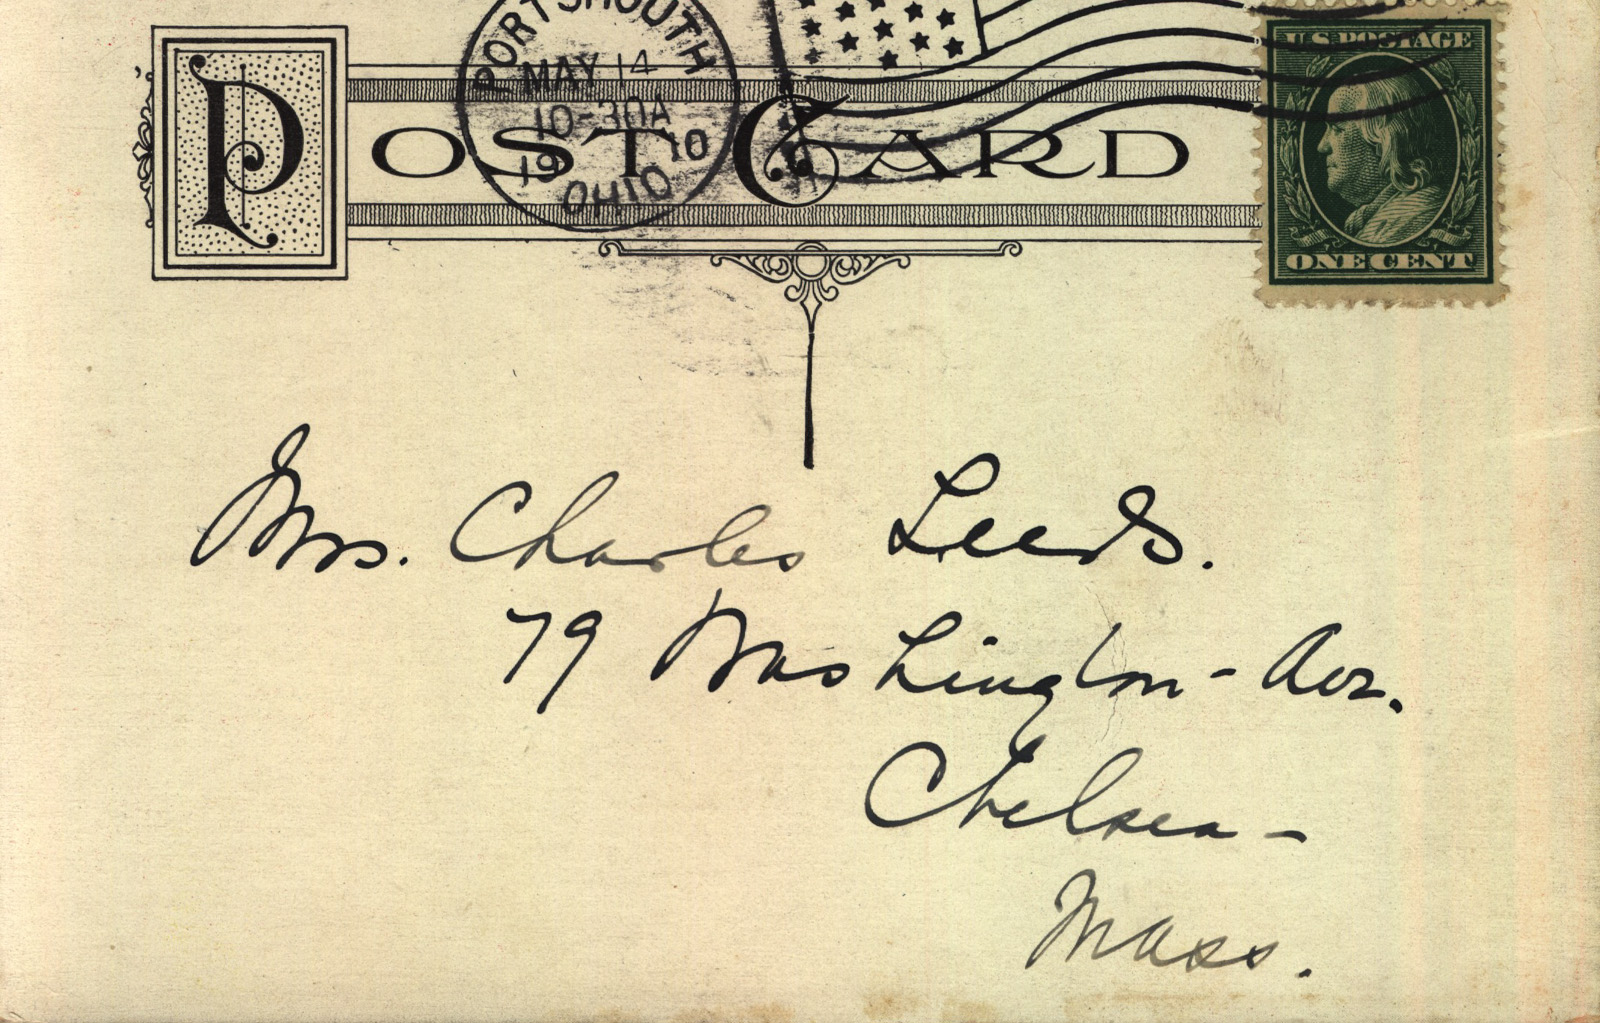 PORTSMOUTH
MAY 14
10-30A
1910
OHIO
POST CARD
U.S. POSTAGE
ONE CENT
Mrs. Charles Leeds.
79 Washington - Ave.
Chelsea -
Mass.